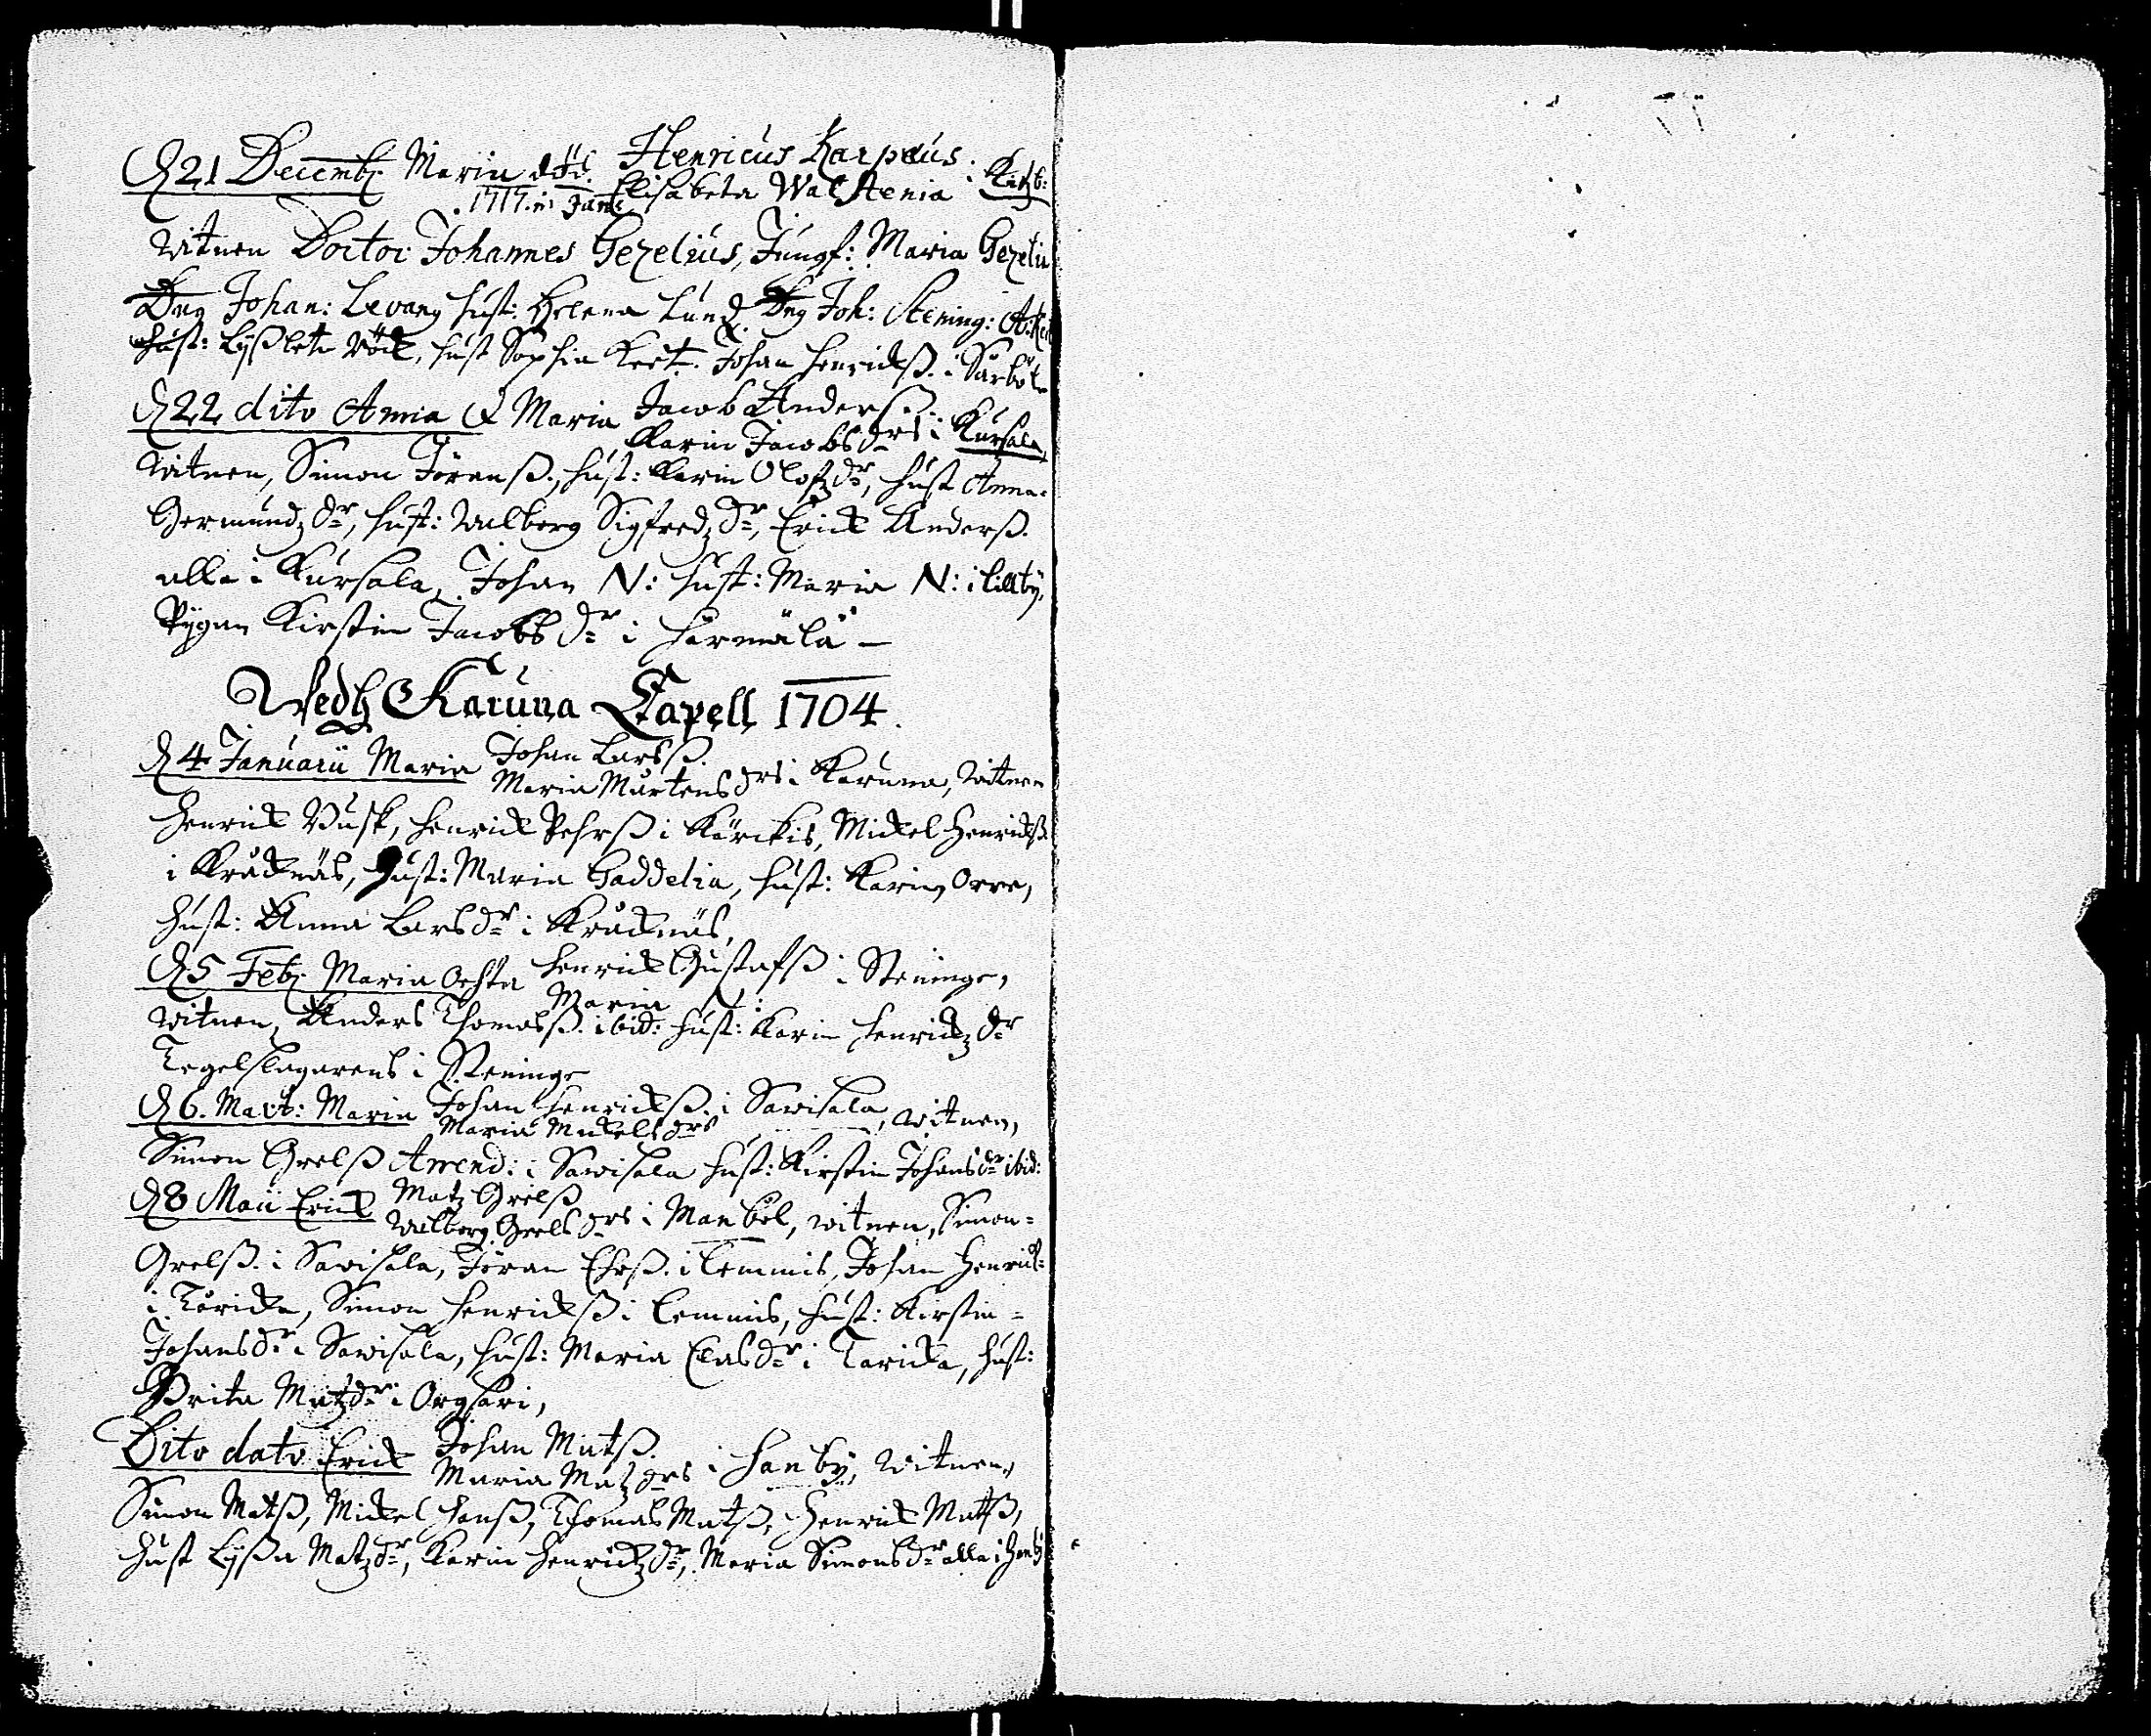 D. 21 Decemb: Maria död. Henricus Karpæus.
1717. in Junio Elisabeta Walstenia i
Witnen Doctor Johannes Gezelius, Jungf: Maria Gezelia
Dng Johan: Levang hust: Helena Lund. Dng Joh: Stening:
hust: Lijsbeta Röök, hust Sophia Kert. Johan Henrichß. i Särböle
D. 22 dito Anna & Maria Jacob Anderß.
Karin Jacobs drs i Kursala,
Witnen, Simon Jöranß., hust: Karin Olofz dr, hust Anna
Germundz dr, hust: Walborg Sigfredz dr, Erick Anderß.
alla i Kursala, Johan N: hust: Maria N: i Lillby,
Pigan Kirstin Jacobs dr i Härmälä –
Wedh Karuna Capell 1704.
D. 4 Januarii Maria Johan Larsß.
Maria Mårtens drs i Karuna, Witnen
Henrick Busk, Henrick Pehrß i Kärckis, Mickel Henrickß.
i Kråcknäs, Hust: Maria Gaddelia, hust: Karin Orre,
hust: Anna Lars dr i Kråcknäs,
D. 5 Feb: Maria oehta Henrick Gustafß i Steninge,
Maria N:
Witnen, Anders Thomasß. ibid: hust: Karin Henrickz dr
Tegelslagarens i Steninge
D. 6. Mart: Maria Johan Henrickß. i Sawisala, witnen,
Maria Mickels drs
Simon Grelß Arrend: i Sawisala hust: Kirstin Johans dr ibid:
D. 8 Maii Erick Matz Grelß
Walborg Grels drs i Manböl, witnen, Simon
Grelß. i Sawisala, Jöran Ehrß. i Lemmis, Johan Henrick
i Täricka, Simon Henrickß i Lemmis, hust: Kirstin
Johans dr i Sawisala, hust: Maria Clas dr i Taricka, hust:
Brita Matz dr i Orgsari,
Dito dato Erick Johan Matß.
Maria Matz drs i Hanby, Witnen,
Simon Matß, Mickel Hanß, Thomas Matß, Henrick Matß,
hust Lijsa Matz dr, Karin Henrickz dr, Maria Simons dr alla i Hanby